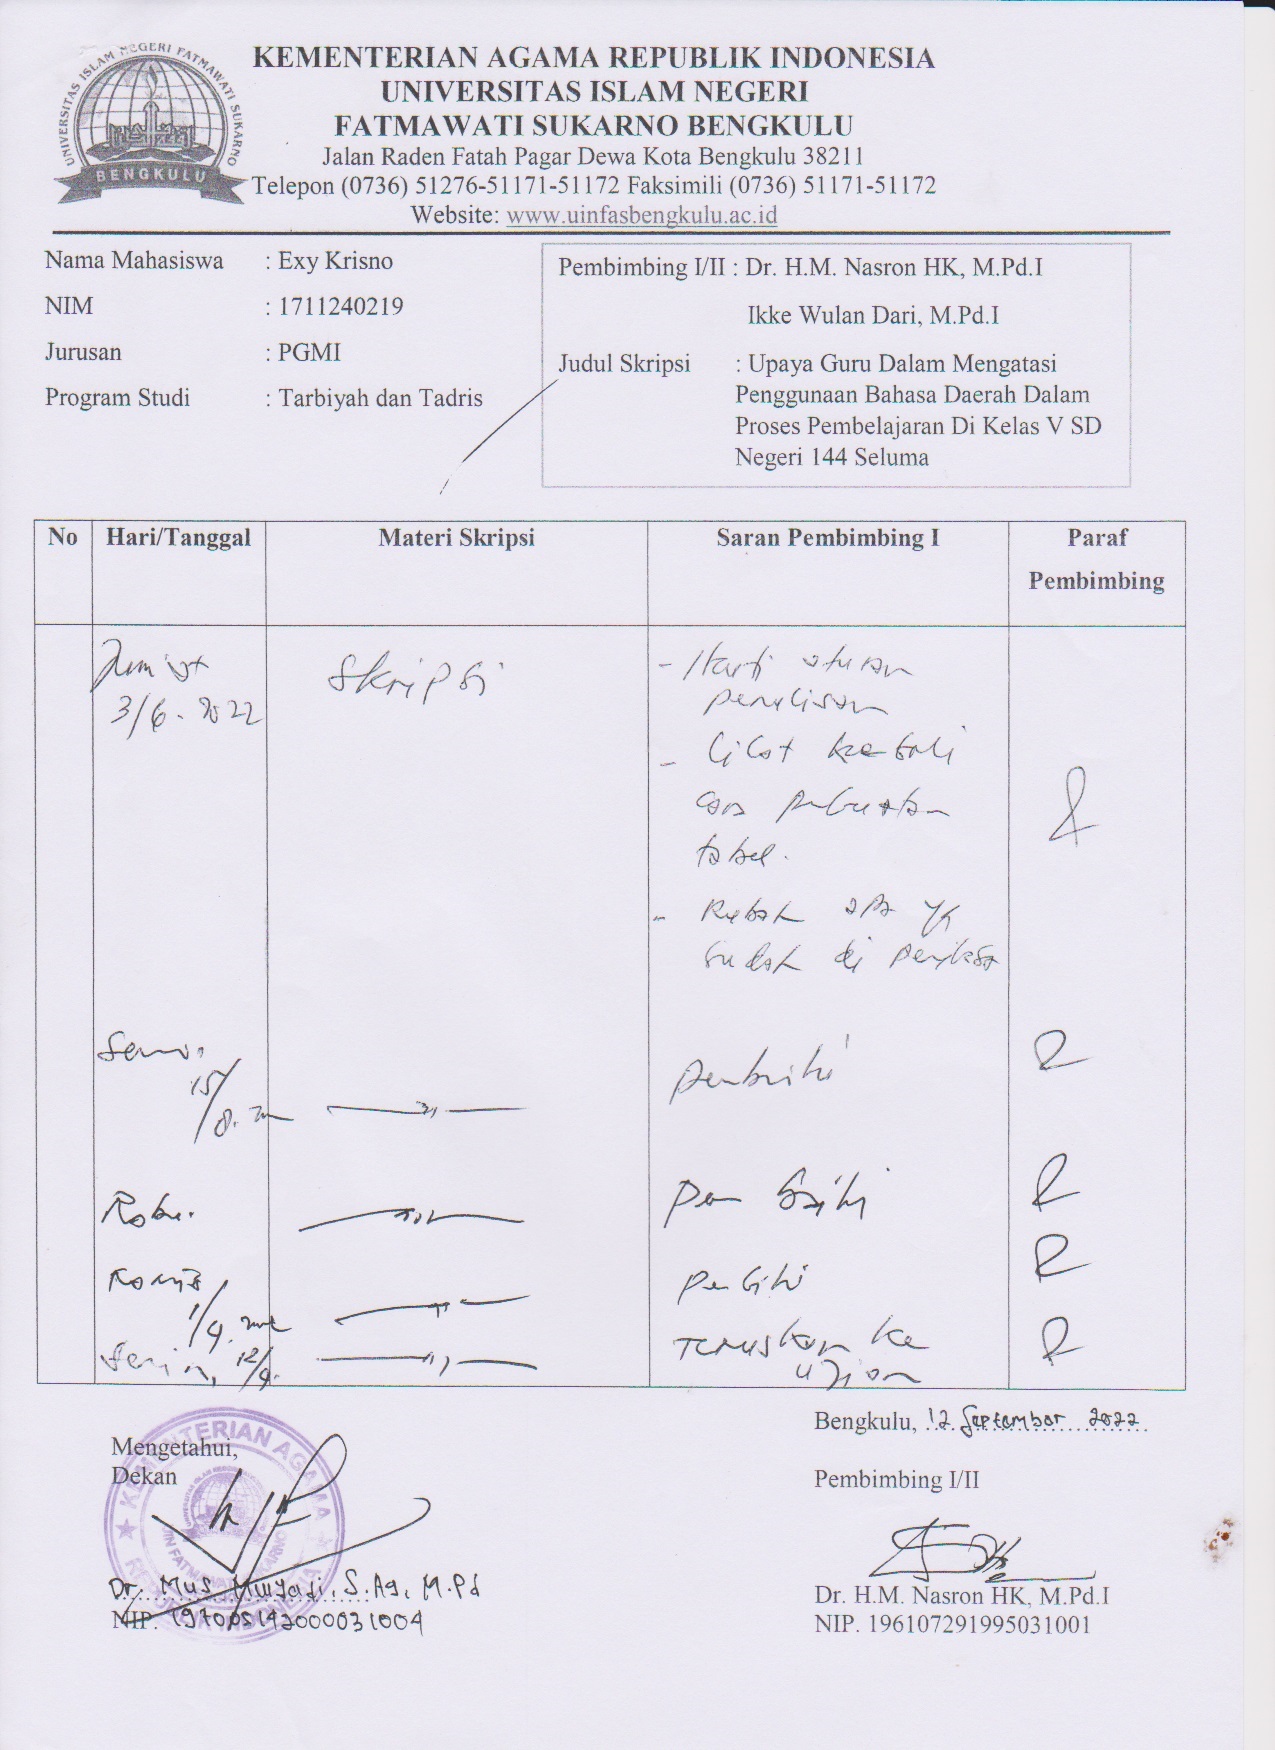 UNIVERSITAS ISLAM NEGERI FATMAWATI SUKARNO
BENGKULU
KEMENTERIAN AGAMA REPUBLIK INDONESIA
UNIVERSITAS ISLAM NEGERI
FATMAWATI SUKARNO BENGKULU
Jalan Raden Fatah Pagar Dewa Kota Bengkulu 38211
Telepon (0736) 51276-51171-51172 Faksimili (0736) 51171-51172
Website: www.uinfasbengkulu.ac.id
Nama Mahasiswa : Exy Krisno
NIM : 1711240219
Jurusan : PGMI
Program Studi : Tarbiyah dan Tadris
Pembimbing I/II : Dr. H.M. Nasron HK, M.Pd.I
Ikke Wulan Dari, M.Pd.I
Judul Skripsi : Upaya Guru Dalam Mengatasi
Penggunaan Bahasa Daerah Dalam
Proses Pembelajaran Di Kelas V SD
Negeri 144 Seluma
No Hari/Tanggal Materi Skripsi Saran Pembimbing I Paraf
Pembimbing
3/6.2022 Skripsi
aturan
penulisan
- Lihat kembali
cara pembuatan
tabel.
- Rubah apa yg
sudah di periksa
Senin
15/8.
Perbaiki
Rabu.
Perbaiki
Kamis
1/9.
Perbaiki
Senin, 12/9.
Teruskan ke
ujian
Bengkulu, 12 September 2022
Mengetahui,
Dekan
Pembimbing I/II
KEMENTERIAN AGAMA
UIN FATMAWATI SUKARNO
REPUBLIK INDONESIA
Dr. Mus Mulyadi, S.Ag, M.Pd
NIP. 197005142000031004
Dr. H.M. Nasron HK, M.Pd.I
NIP. 196107291995031001